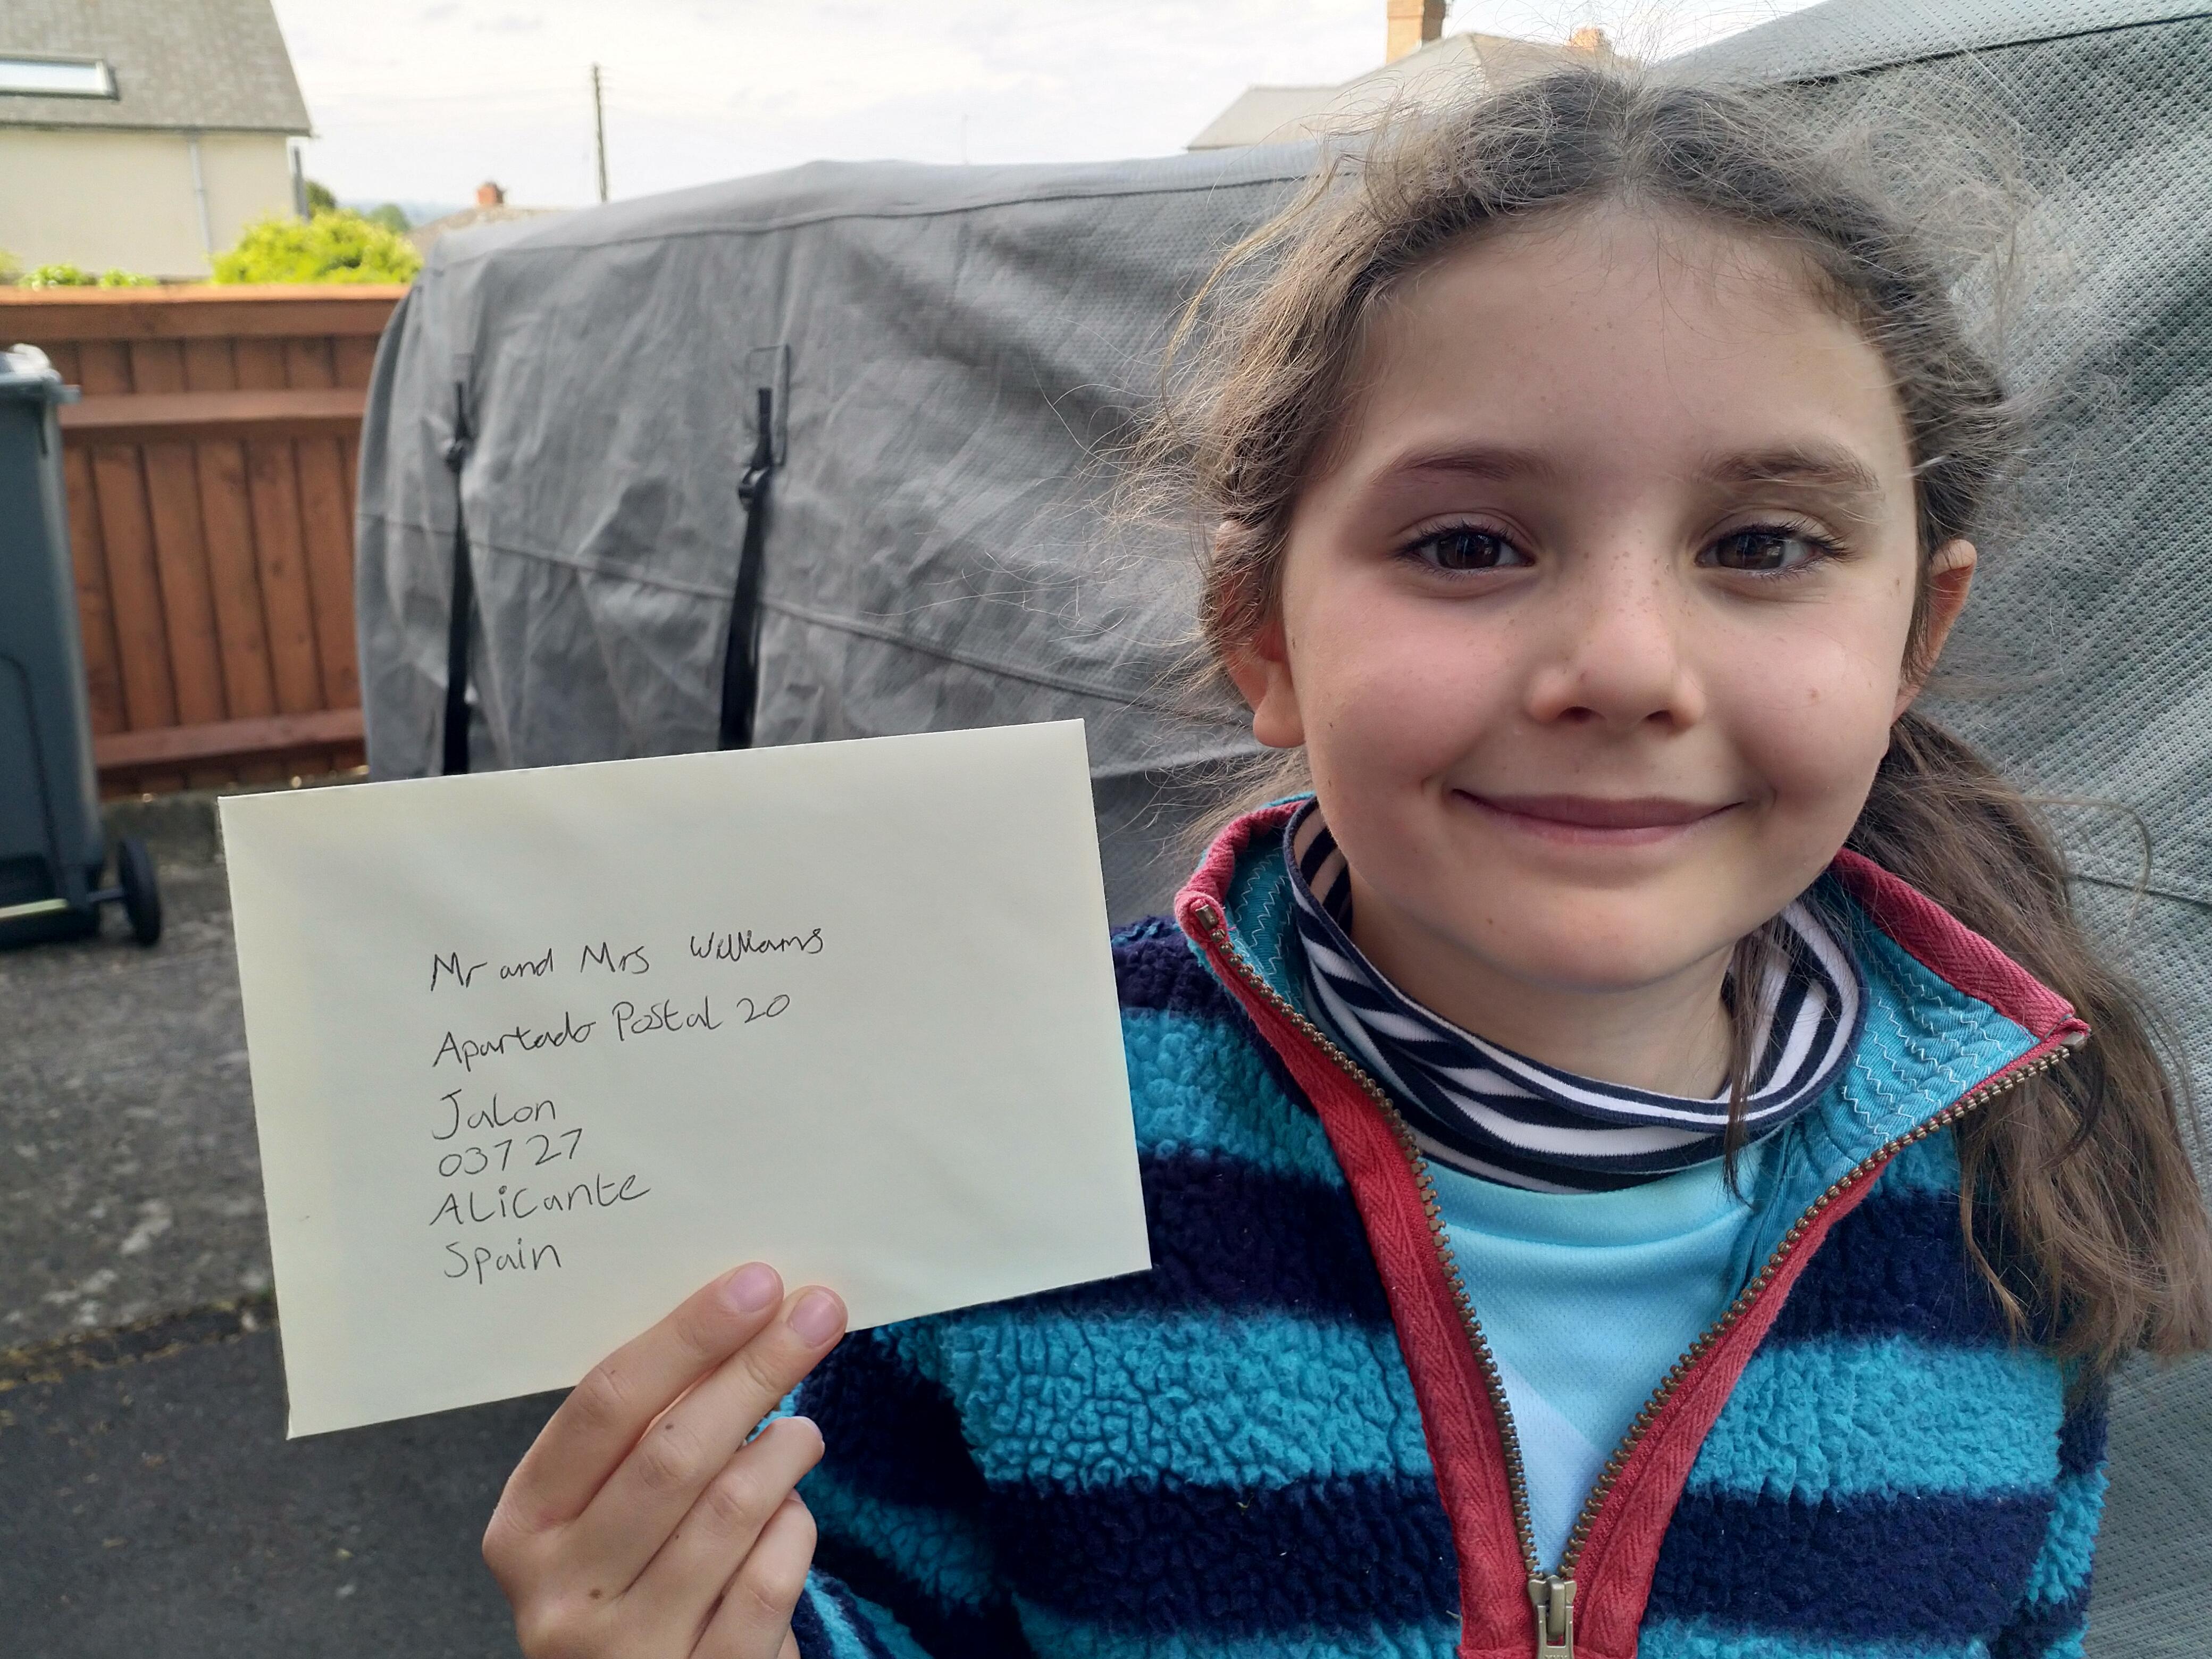 Mr and Mrs Williams
Apartado Postal 20
Jalon
03727
Alicante
Spain